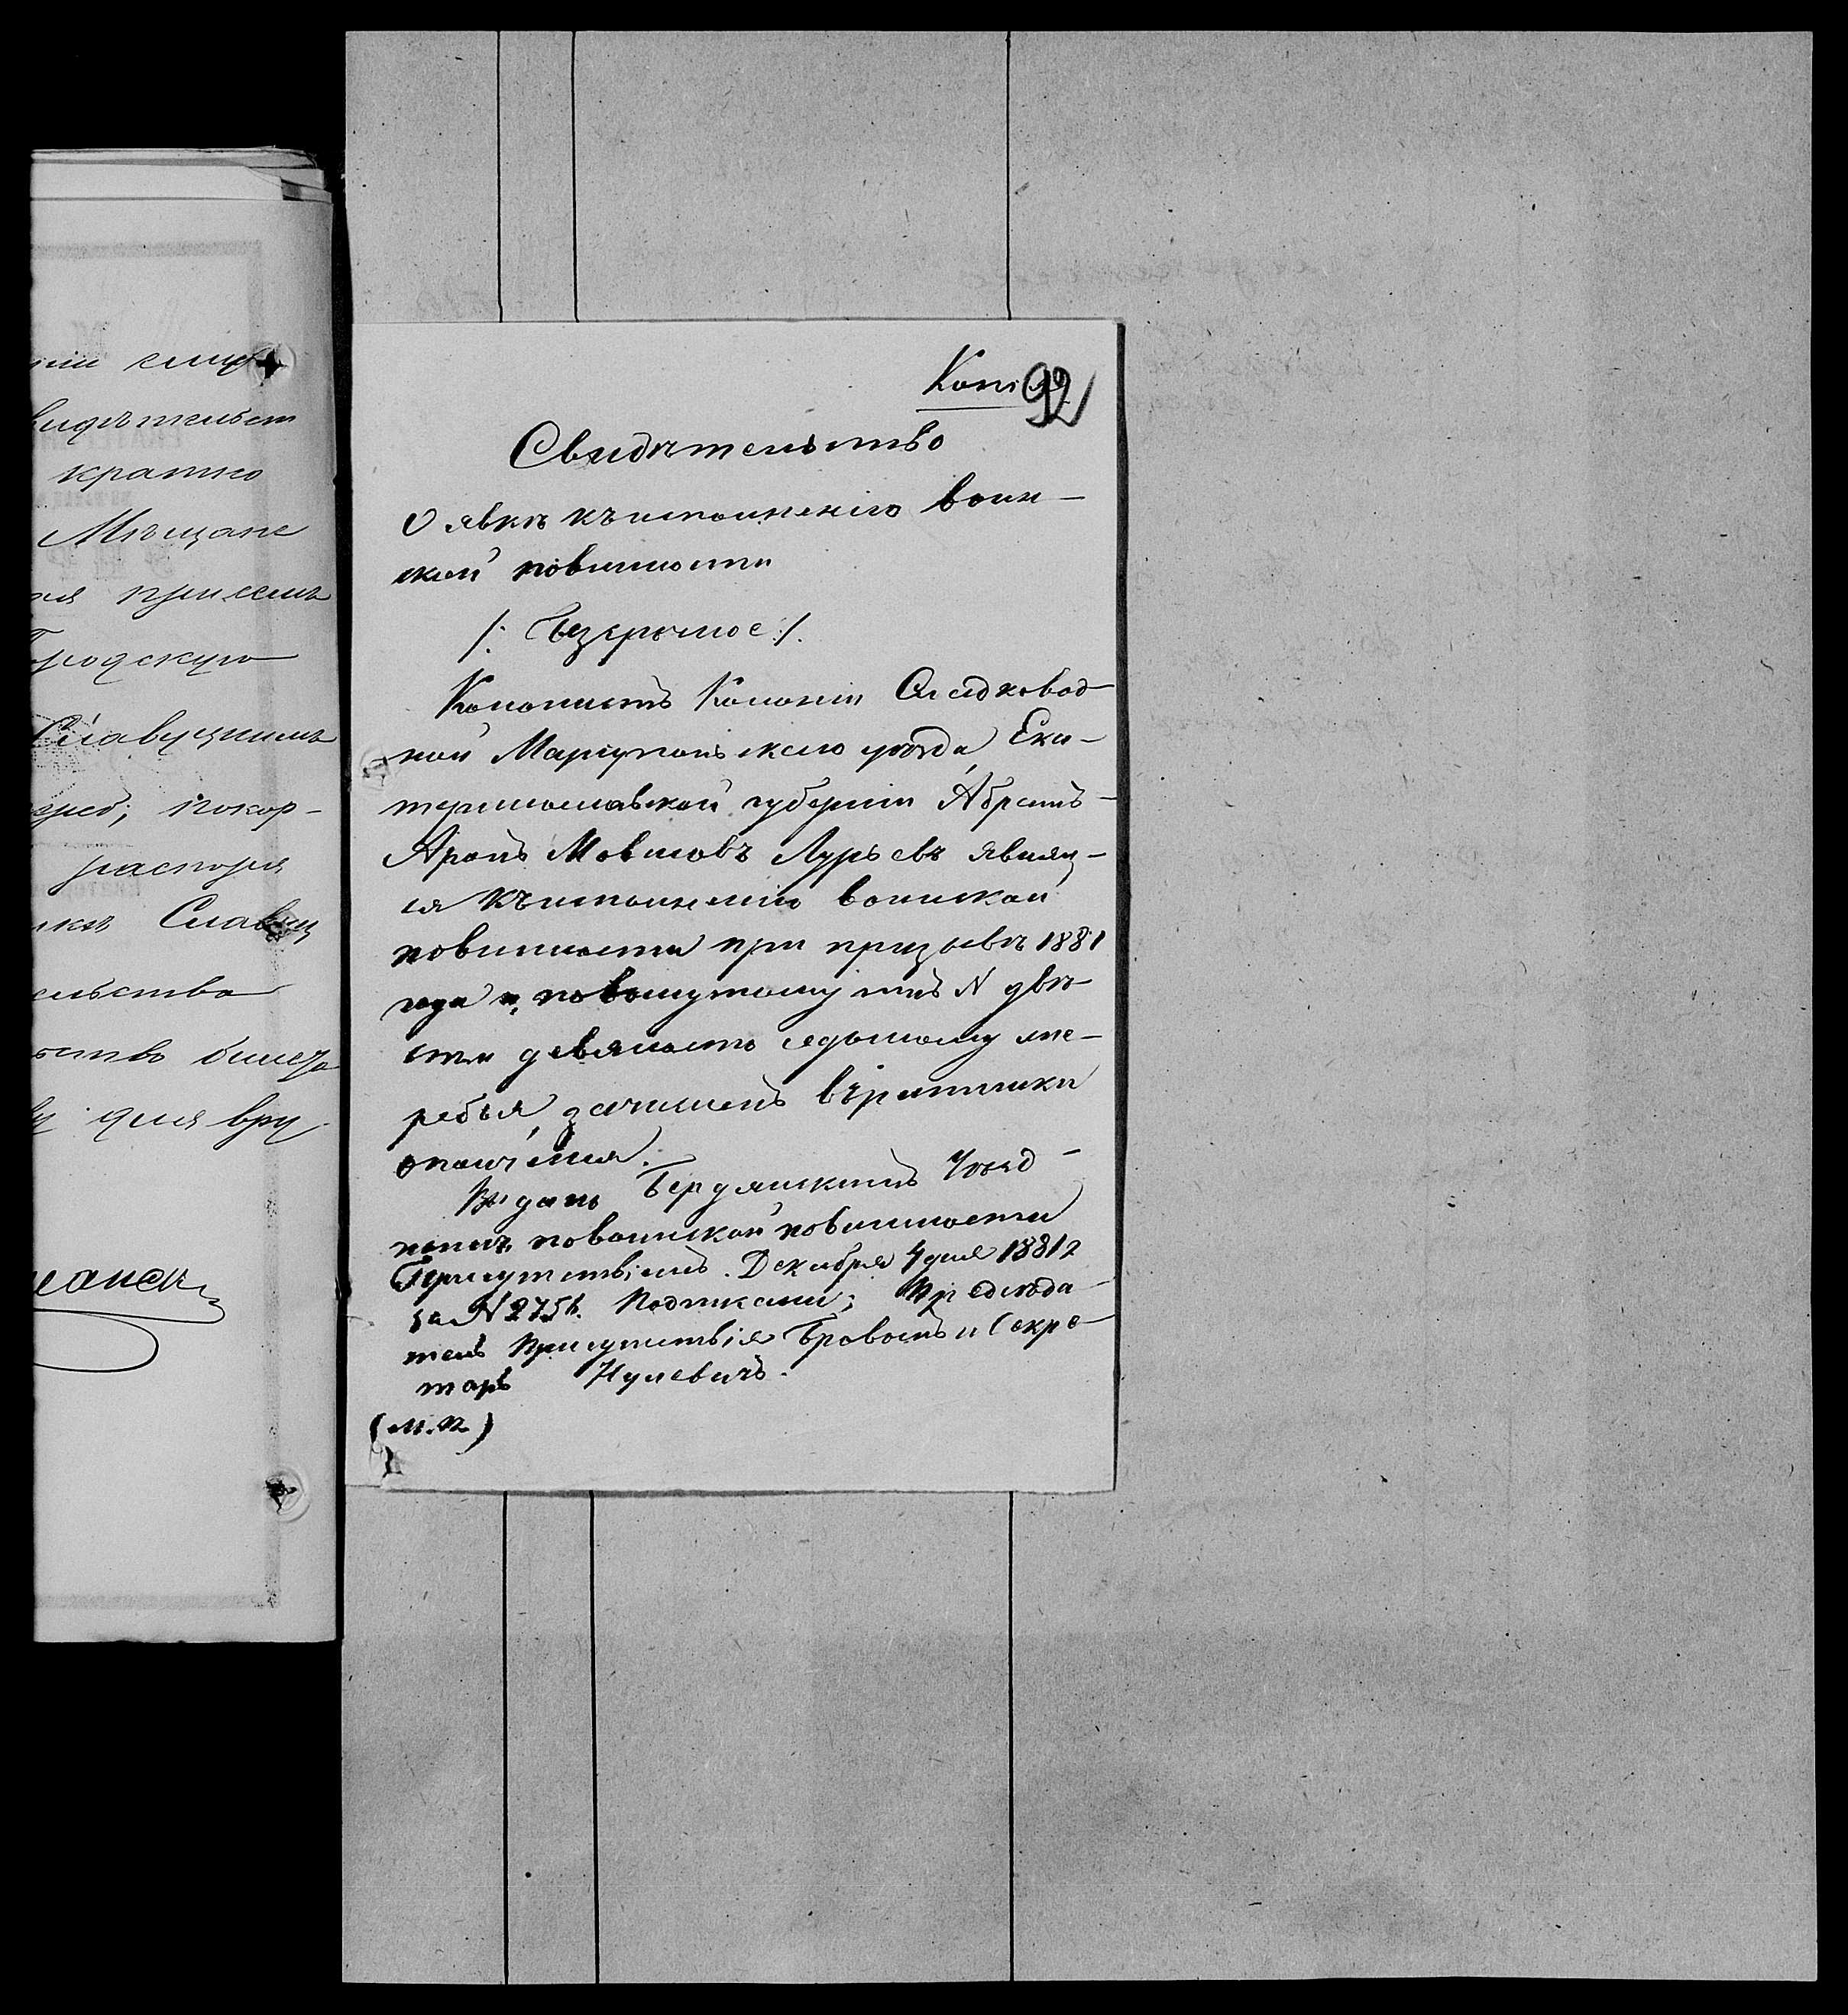 ніи слиф
видѣтельст
кратно
Мѣщане
ня при семъ
Городскую
Славуцкимъ
покор-
распоря
икъ Славуц
ельства
ьство билета
для вру
Копія 92
Свидѣтельство
О явкѣ къ исполненію воин-
ской повинности
/: Безсрочное :/.
Колонистъ Колоніи Сладковод-
ной Маріупольскаго уѣзда Ека-
теринославской губерніи Абрамъ-
Аронъ Мовшовъ Лурьевъ являл-
ся къ исполненію воинской
повинности при призывѣ 1881
года и, по вынутому имъ N двѣ-
сти девяносто седьмому же-
ребья, зачисленъ въ ратники
ополченія.
Выдано Бердянскимъ Уѣзд-
нымъ по воинской повинности
Присутствіемъ. Декабря 4 дня 1881 г
за N 2756. Подписали: Предсѣда-
тель Присутствія и Секре-
тарь
(М.П.)